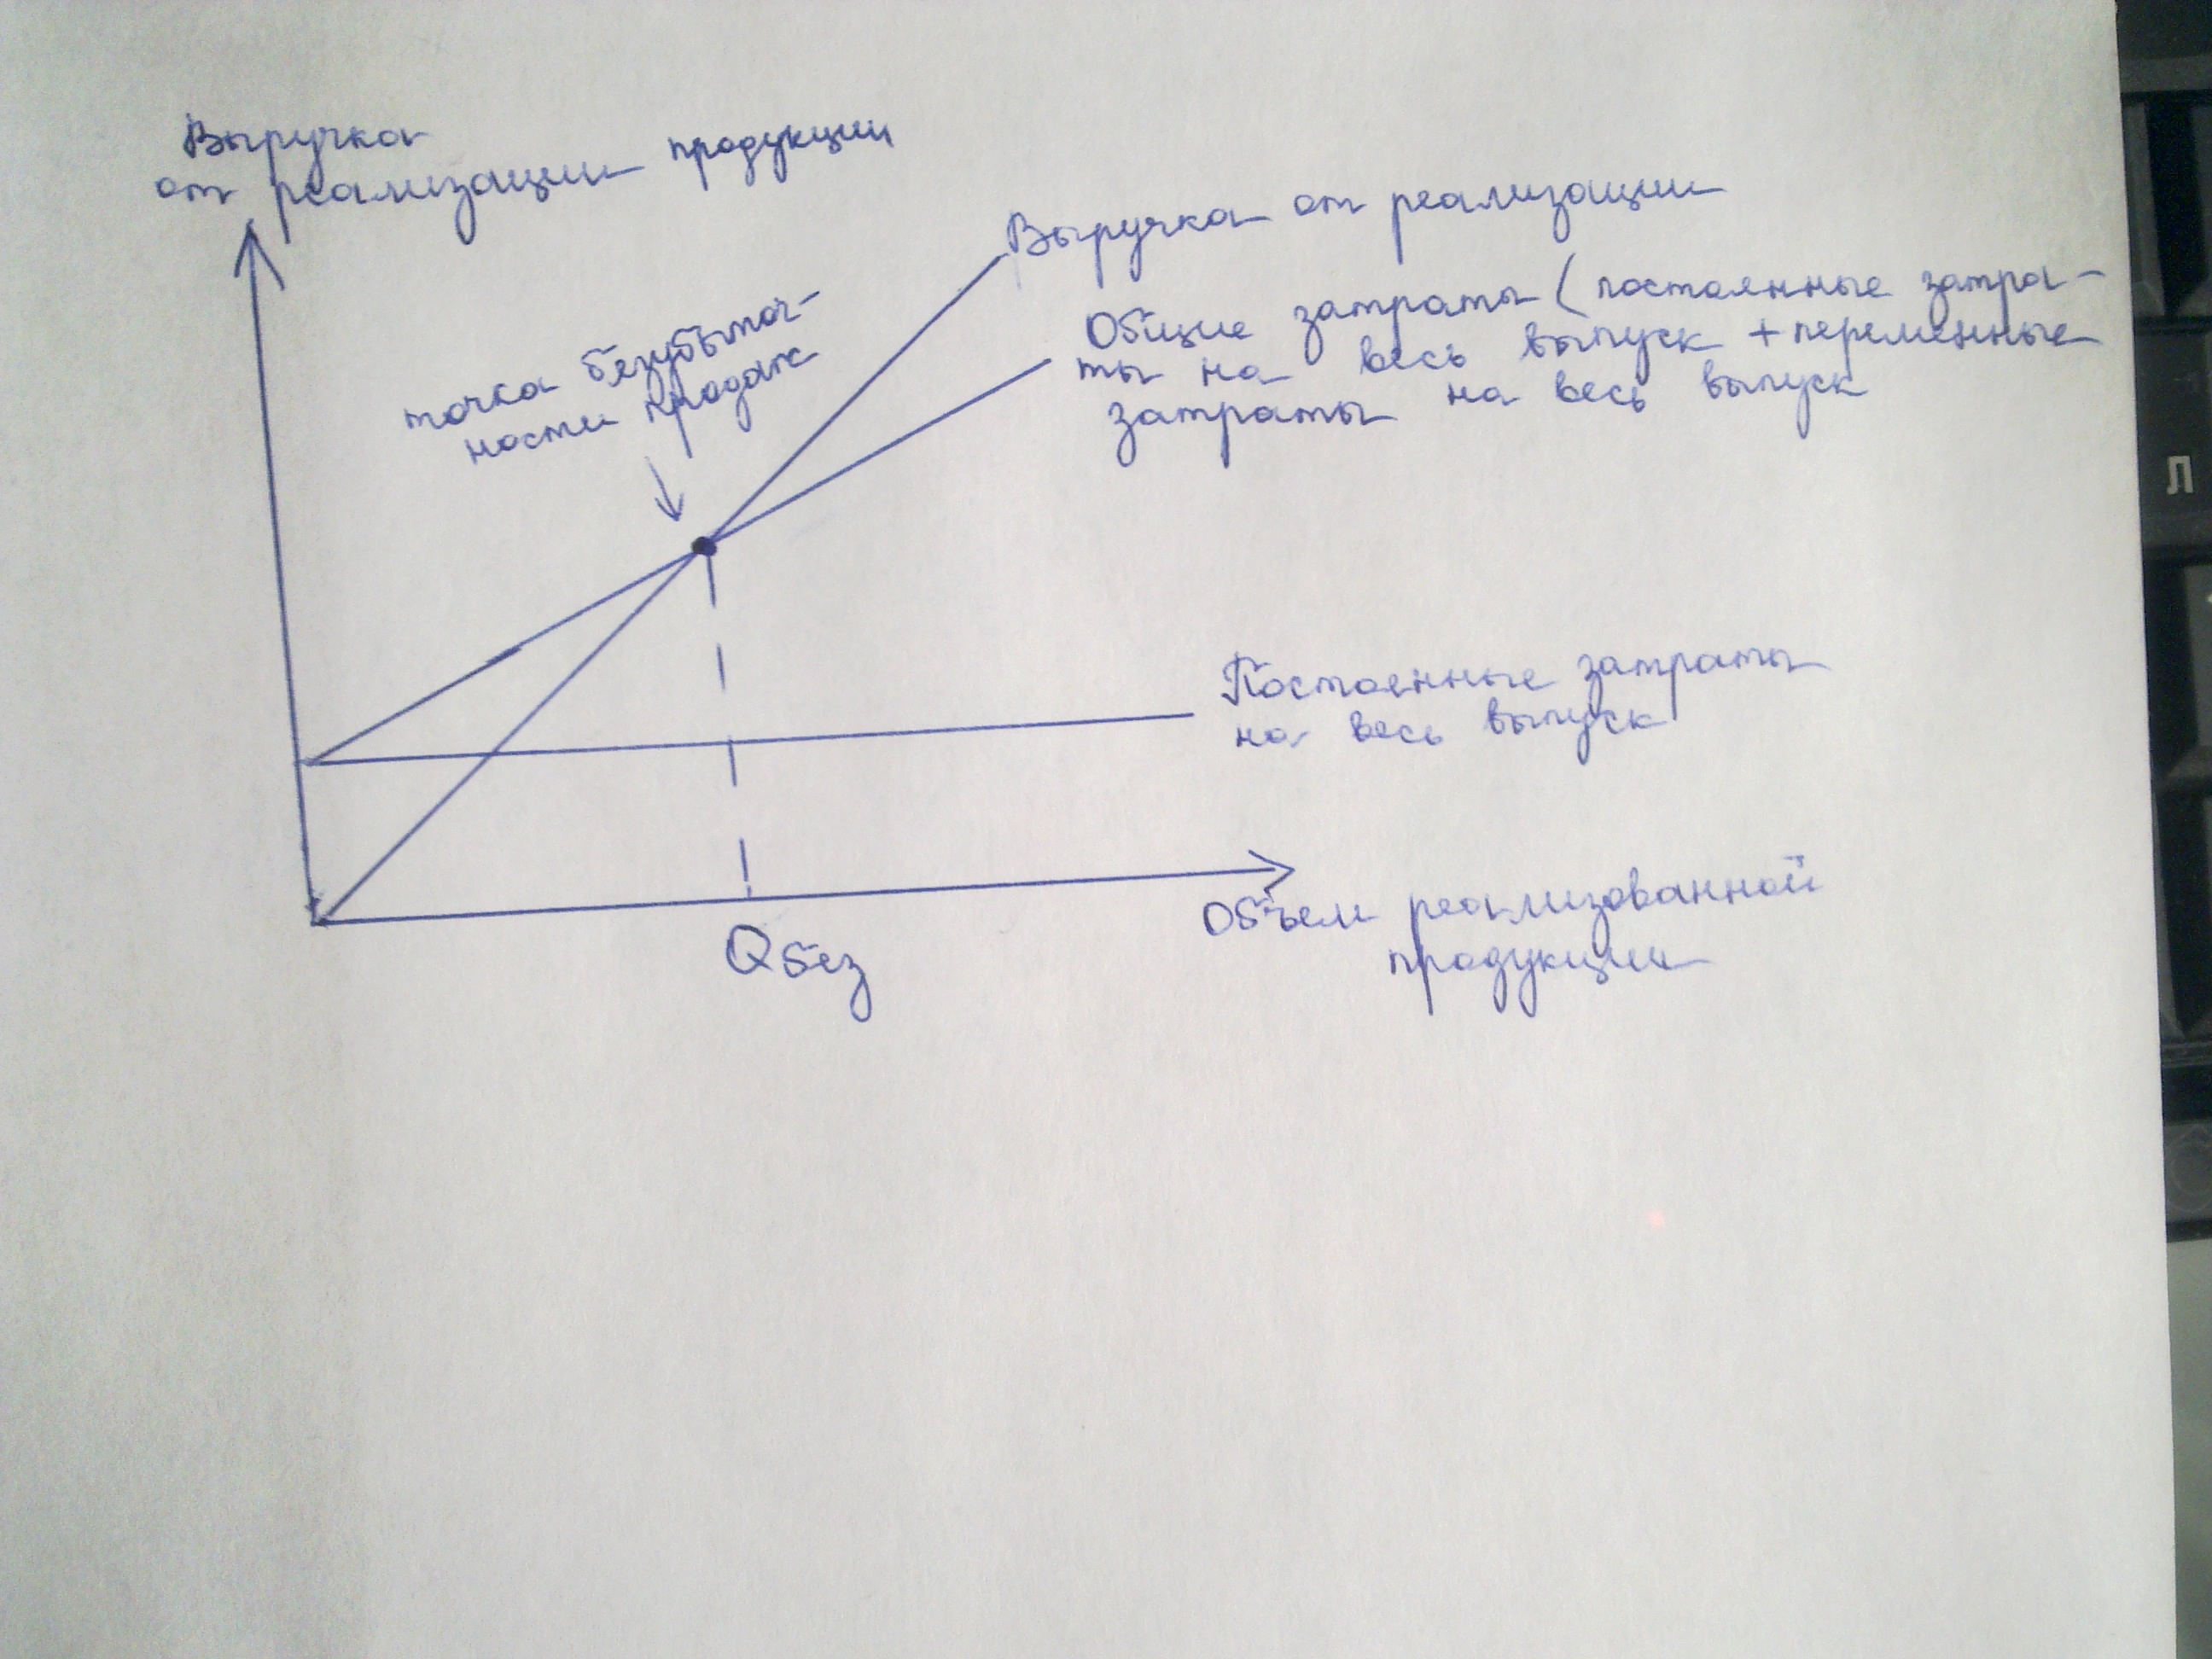 Выручка
от реализации продукции
Выручка от реализации
точка безубыточ-
ности продаж
Общие затраты (постоянные затра-
ты на весь выпуск + переменные
затраты на весь выпуск
Постоянные затраты
на весь выпуск
Объем реализованной
продукции
Qбез
Л